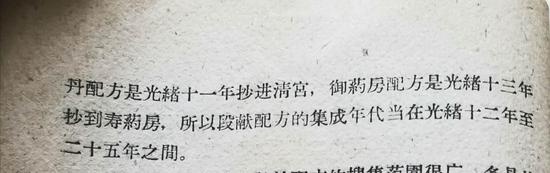 丹配方是光緒十一年抄进清宮，御葯房配方是光緒十三年
抄到寿葯房，所以段献配方的集成年代当在光緒十二年至
二十五年之間。